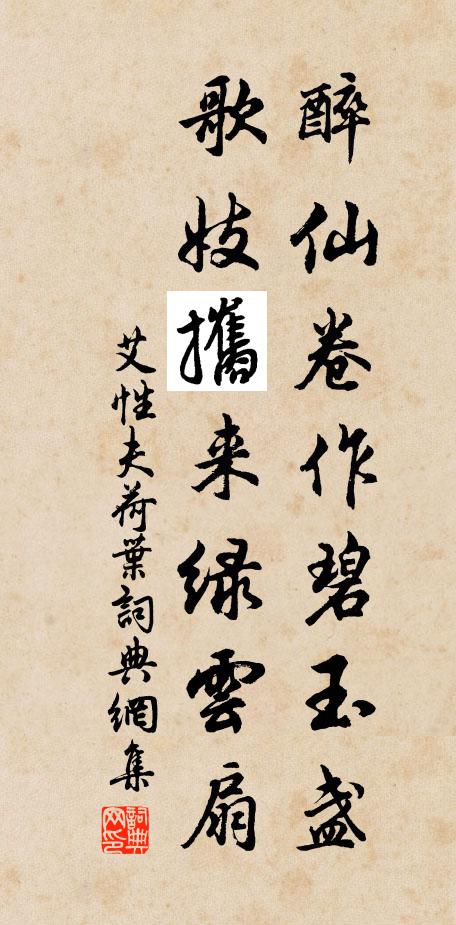 醉仙卷作碧玉盏
歌妓攜来绿雲扇
艾性夫荷葉詞典網集
詞典网印